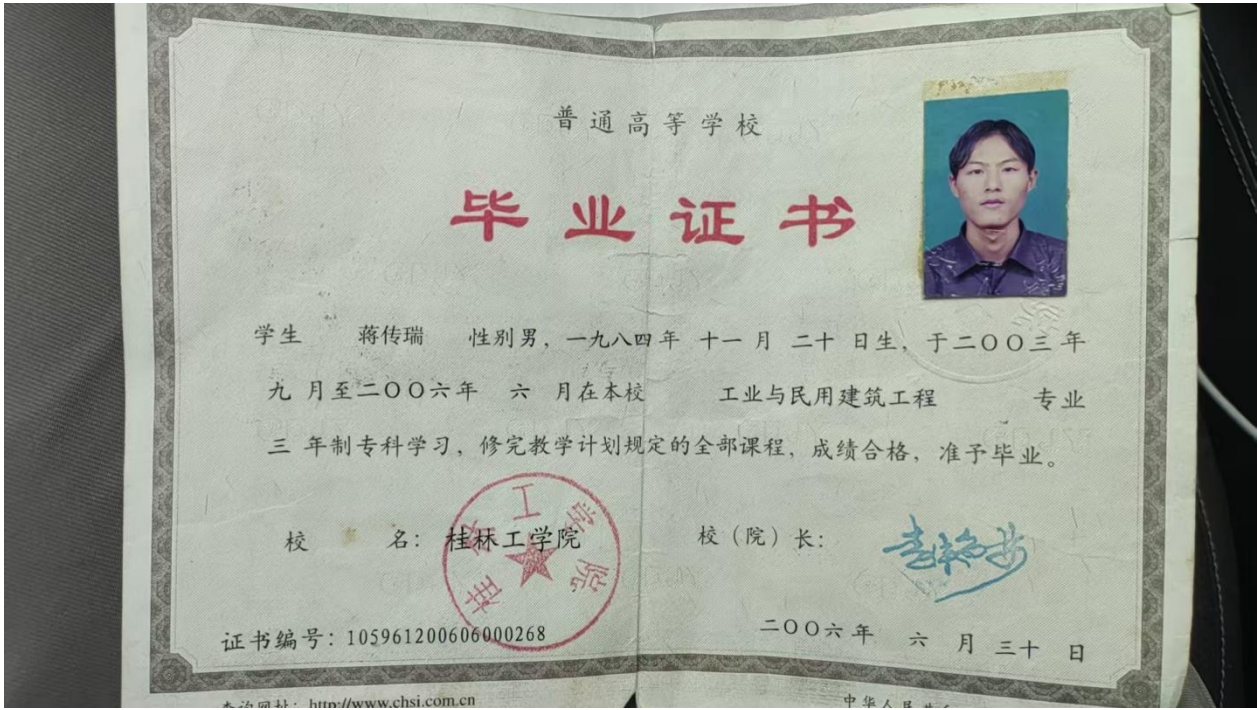 普通高等学校
毕业证书
学生 蒋传瑞 性别男，一九八四年 十一 月 二十 日生，于二〇〇三年
九 月至二〇〇六年 六 月在本校 工业与民用建筑工程 专业
三 年制专科学习，修完教学计划规定的全部课程，成绩合格，准予毕业。
校 名：桂林工学院
桂林工学院
校（院）长：
证书编号：105961200606000268
二〇〇六年 六 月 三十 日
查询网址：http://www.chsi.com.cn
中华人民共和